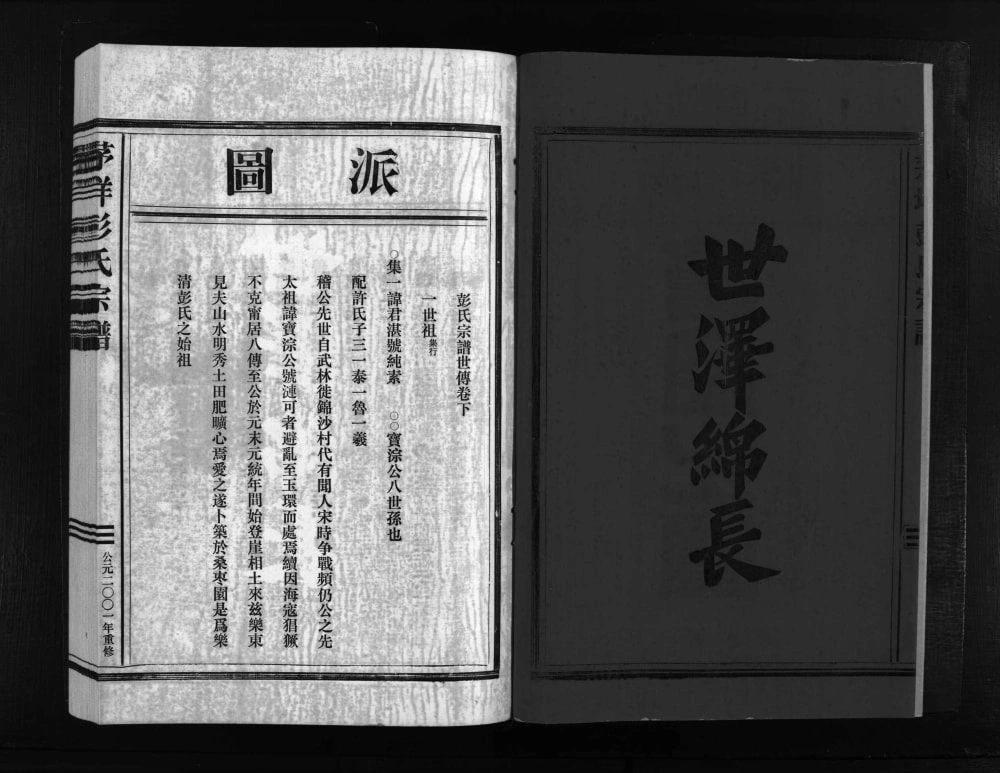 世澤綿長
派圖
彭氏宗譜世傳卷下
一世祖集行
○集一諱君湛號純素　○○寶淙公八世孫也
配許氏子三一泰一魯一羲
稽公先世自武林徙錦沙村代有聞人宋時争戰頻仍公之先
太祖諱寶淙公號漣可者避亂至玉環而處焉續因海寇猖獗
不克甯居八傳至公於元末元統年間始登崖相土來兹樂東
見夫山水明秀土田肥曠心焉愛之遂卜築於桑枣園是爲樂
清彭氏之始祖
茅垟彭氏宗譜
公元二〇〇一年重修